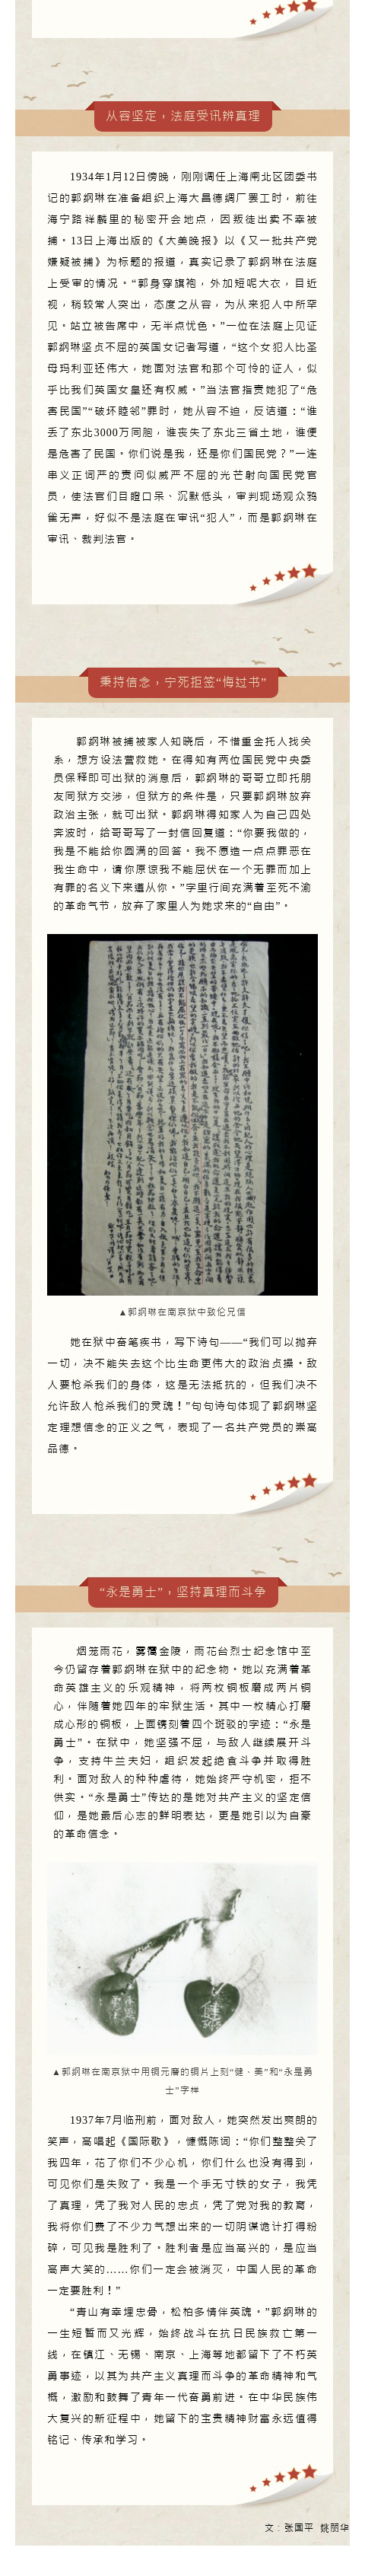 从容坚定，法庭受讯辨真理
1934年1月12日傍晚，刚刚调任上海闸北区团委书
记的郭纲琳在准备组织上海大昌德绸厂罢工时，前往
海宁路祥麟里的秘密开会地点，因叛徒出卖不幸被
捕。13日上海出版的《大美晚报》以《又一批共产党
嫌疑被捕》为标题的报道，真实记录了郭纲琳在法庭
上受审的情况。“郭身穿旗袍，外加短呢大衣，目近
视，稍较常人突出，态度之从容，为从来犯人中所罕
见。站立被告席中，无半点忧色。”一位在法庭上见证
郭纲琳坚贞不屈的英国女记者写道，“这个女犯人比圣
母玛利亚还伟大，她面对法官和那个可怜的证人，似
乎比我们英国女皇还有权威。”当法官指责她犯了“危
害民国”“破坏睦邻”罪时，她从容不迫，反诘道：“谁
丢了东北3000万同胞，谁丧失了东北三省土地，谁便
是危害了民国。你们说是我，还是你们国民党？”一连
串义正词严的责问似威严不屈的光芒射向国民党官
员，使法官们目瞪口呆、沉默低头，审判现场观众鸦
雀无声，好似不是法庭在审讯“犯人”，而是郭纲琳在
审讯、裁判法官。
秉持信念，宁死拒签“悔过书”
郭纲琳被捕被家人知晓后，不惜重金托人找关
系，想方设法营救她。在得知有两位国民党中央委
员保释即可出狱的消息后，郭纲琳的哥哥立即托朋
友同狱方交涉，但狱方的条件是，只要郭纲琳放弃
政治主张，就可出狱。郭纲琳得知家人为自己四处
奔波时，给哥哥写了一封信回复道：“你要我做的，
我是不能给你圆满的回答。我不愿造一点点罪恶在
我生命中，请你原谅我不能屈伏在一个无罪而加上
有罪的名义下来遵从你。”字里行间充满着至死不渝
的革命气节，放弃了家里人为她求来的“自由”。
▲郭纲琳在南京狱中致伦兄信
她在狱中奋笔疾书，写下诗句——“我们可以抛弃
一切，决不能失去这个比生命更伟大的政治贞操。敌
人要枪杀我们的身体，这是无法抵抗的，但我们决不
允许敌人枪杀我们的灵魂！”句句诗句体现了郭纲琳坚
定理想信念的正义之气，表现了一名共产党员的崇高
品德。
“永是勇士”，坚持真理而斗争
烟笼雨花，雾霭金陵，雨花台烈士纪念馆中至
今仍留存着郭纲琳在狱中的纪念物。她以充满着革
命英雄主义的乐观精神，将两枚铜板磨成两片铜
心，伴随着她四年的牢狱生活。其中一枚精心打磨
成心形的铜板，上面镌刻着四个斑驳的字迹：“永是
勇士”。在狱中，她坚强不屈，与敌人继续展开斗
争，支持牛兰夫妇，组织发起绝食斗争并取得胜
利。面对敌人的种种虐待，她始终严守机密，拒不
供实。“永是勇士”传达的是她对共产主义的坚定信
仰，是她最后心志的鲜明表达，更是她引以为自豪
的革命信念。
健
▲郭纲琳在南京狱中用铜元磨的铜片上刻“健、美”和“永是勇
士”字样
1937年7月临刑前，面对敌人，她突然发出爽朗的
笑声，高唱起《国际歌》，慷慨陈词：“你们整整关了
我四年，花了你们不少心机，你们什么也没有得到，
可见你们是失败了。我是一个手无寸铁的女子，我凭
了真理，凭了我对人民的忠贞，凭了党对我的教育，
我将你们费了不少力气想出来的一切阴谋诡计打得粉
碎，可见我是胜利了。胜利者是应当高兴的，是应当
高声大笑的……你们一定会被消灭，中国人民的革命
一定要胜利！”
“青山有幸埋忠骨，松柏多情伴英魂。”郭纲琳的
一生短暂而又光辉，始终战斗在抗日民族救亡第一
线，在镇江、无锡、南京、上海等地都留下了不朽英
勇事迹，以其为共产主义真理而斗争的革命精神和气
概，激励和鼓舞了青年一代奋勇前进。在中华民族伟
大复兴的新征程中，她留下的宝贵精神财富永远值得
铭记、传承和学习。
文：张国平 姚丽华